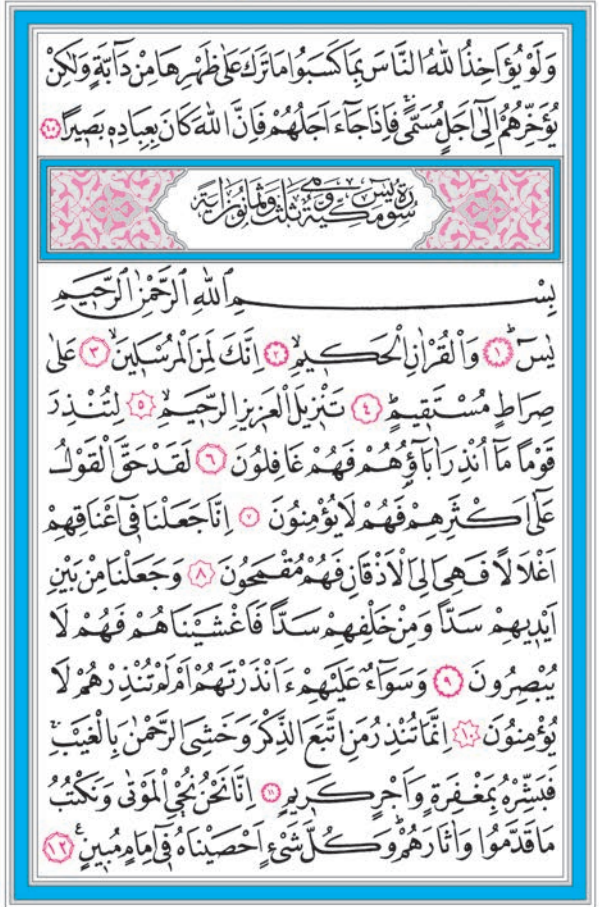 وَلَوْ يُؤَاخِذُ اللّٰهُ النَّاسَ بِمَا كَسَبُوا مَا تَرَكَ عَلٰى ظَهْرِهَا مِنْ دَٓابَّةٍ وَلٰكِنْ
يُؤَخِّرُهُمْ اِلٰٓى اَجَلٍ مُسَمًّىۚ فَاِذَا جَٓاءَ اَجَلُهُمْ فَاِنَّ اللّٰهَ كَانَ بِعِبَادِه۪ بَص۪يرًا ٤٥
سُورَةُ يٰسٓ مَكِّيَّةٌ وَهِيَ ثَلٰثٌ وَثَمَانُونَ اٰيَةً
بِسْمِ اللّٰهِ الرَّحْمٰنِ الرَّح۪يمِ
يٰسٓۜ ١ وَالْقُرْاٰنِ الْحَك۪يمِۙ ٢ اِنَّكَ لَمِنَ الْمُرْسَل۪ينَۙ ٣ عَلٰى
صِرَاطٍ مُسْتَق۪يمٍۜ ٤ تَنْز۪يلَ الْعَز۪يزِ الرَّح۪يمِۙ ٥ لِتُنْذِرَ
قَوْمًا مَٓا اُنْذِرَ اٰبَٓاؤُ۬هُمْ فَهُمْ غَافِلُونَ ٦ لَقَدْ حَقَّ الْقَوْلُ
عَلٰٓى اَكْثَرِهِمْ فَهُمْ لَا يُؤْمِنُونَ ٧ اِنَّا جَعَلْنَا ف۪ٓي اَعْنَاقِهِمْ
اَغْلَالًا فَهِيَ اِلَى الْاَذْقَانِ فَهُمْ مُقْمَحُونَ ٨ وَجَعَلْنَا مِنْ بَيْنِ
اَيْد۪يهِمْ سَدًّا وَمِنْ خَلْفِهِمْ سَدًّا فَاَغْشَيْنَاهُمْ فَهُمْ لَا
يُبْصِرُونَ ٩ وَسَوَٓاءٌ عَلَيْهِمْ ءَاَنْذَرْتَهُمْ اَمْ لَمْ تُنْذِرْهُمْ لَا
يُؤْمِنُونَ ١٠ اِنَّمَا تُنْذِرُ مَنِ اتَّبَعَ الذِّكْرَ وَخَشِيَ الرَّحْمٰنَ بِالْغَيْبِۚ
فَبَشِّرْهُ بِمَغْفِرَةٍ وَاَجْرٍ كَر۪يمٍ ١١ اِنَّا نَحْنُ نُحْيِ الْمَوْتٰى وَنَكْتُبُ
مَا قَدَّمُوا وَاٰثَارَهُمْۜ وَكُلَّ شَيْءٍ اَحْصَيْنَاهُ ف۪ٓي اِمَامٍ مُب۪ينٍ۟ ١٢